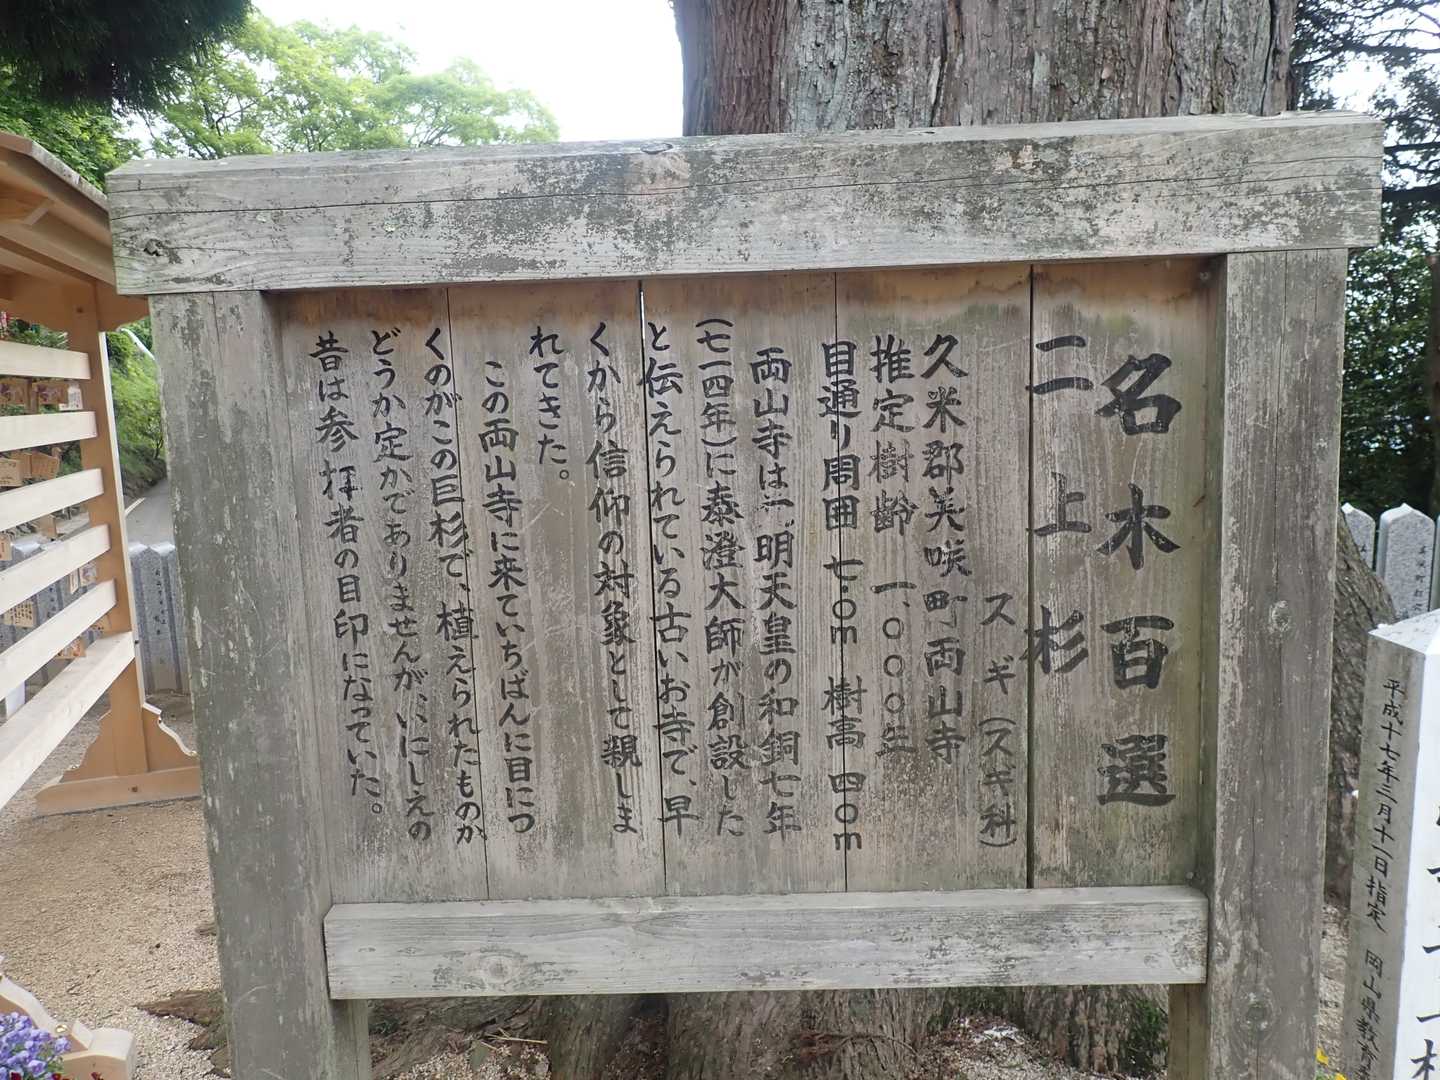 名木百選
二上杉
スギ(スギ科)
久米郡美咲町両山寺
推定樹齢 一、〇〇〇年
目通り周囲 七・〇m 樹高 四〇m
両山寺は元明天皇の和銅七年
(七一四年)に泰澄大師が創設した
と伝えられている古いお寺で、早
くから信仰の対象として親しま
れてきた。
この両山寺に来ていちばんに目につ
くのがこの巨杉で、植えられたものか
どうか定かでありませんが、いにしえの
昔は参拝者の目印になっていた。
平成十七年三月十一日指定 岡山県教育